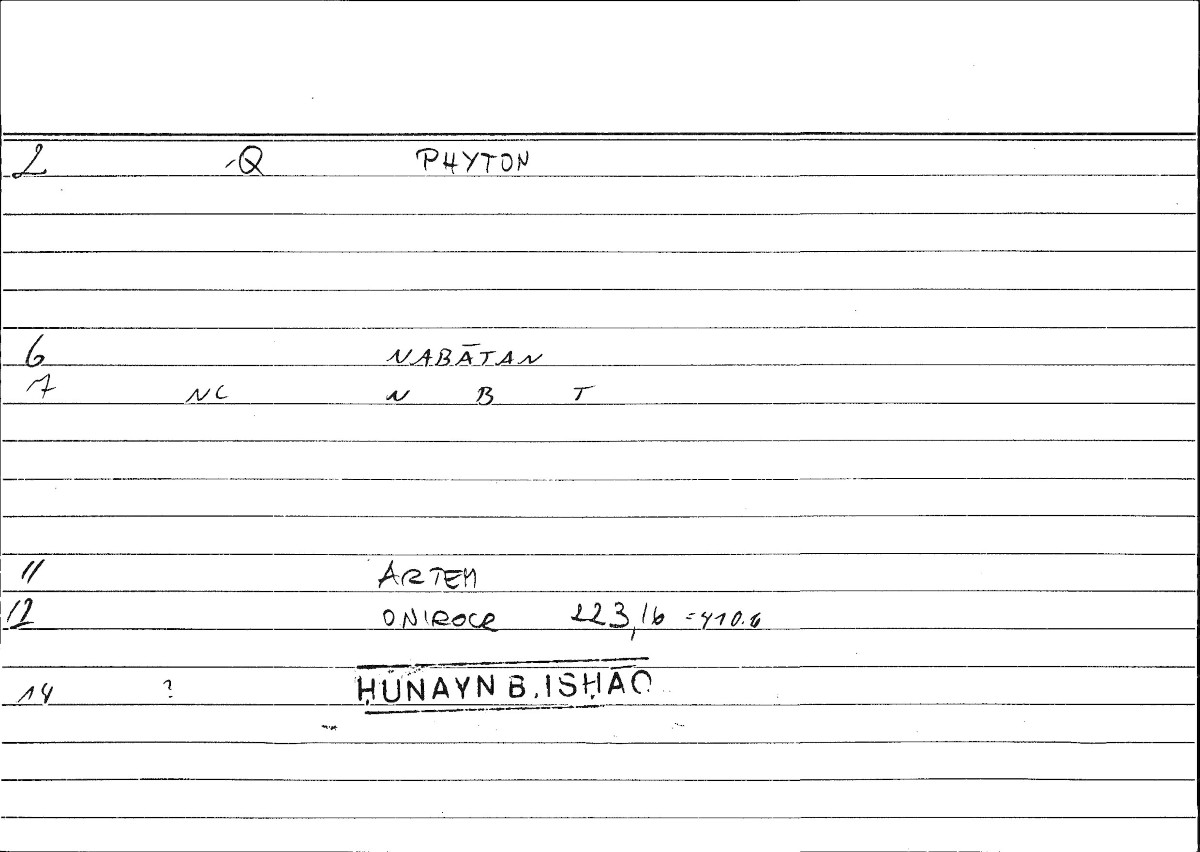 2 -Q PHYTON
6 NABĀTAN
7 NC N B T
11 ARTEM
12 ONIROCR 223,16 =410.6
14 ? ḤUNAYN B. ISḤĀQ